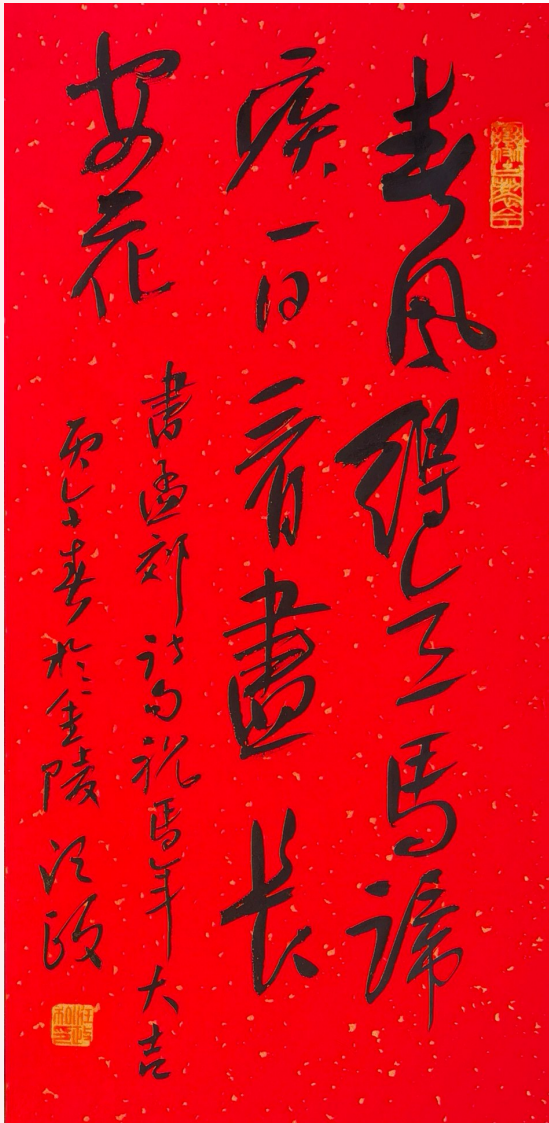 春風得意馬蹄
疾一日看盡長
安花
書孟郊詩句祝馬年大吉
丙午春於金陵 汪政